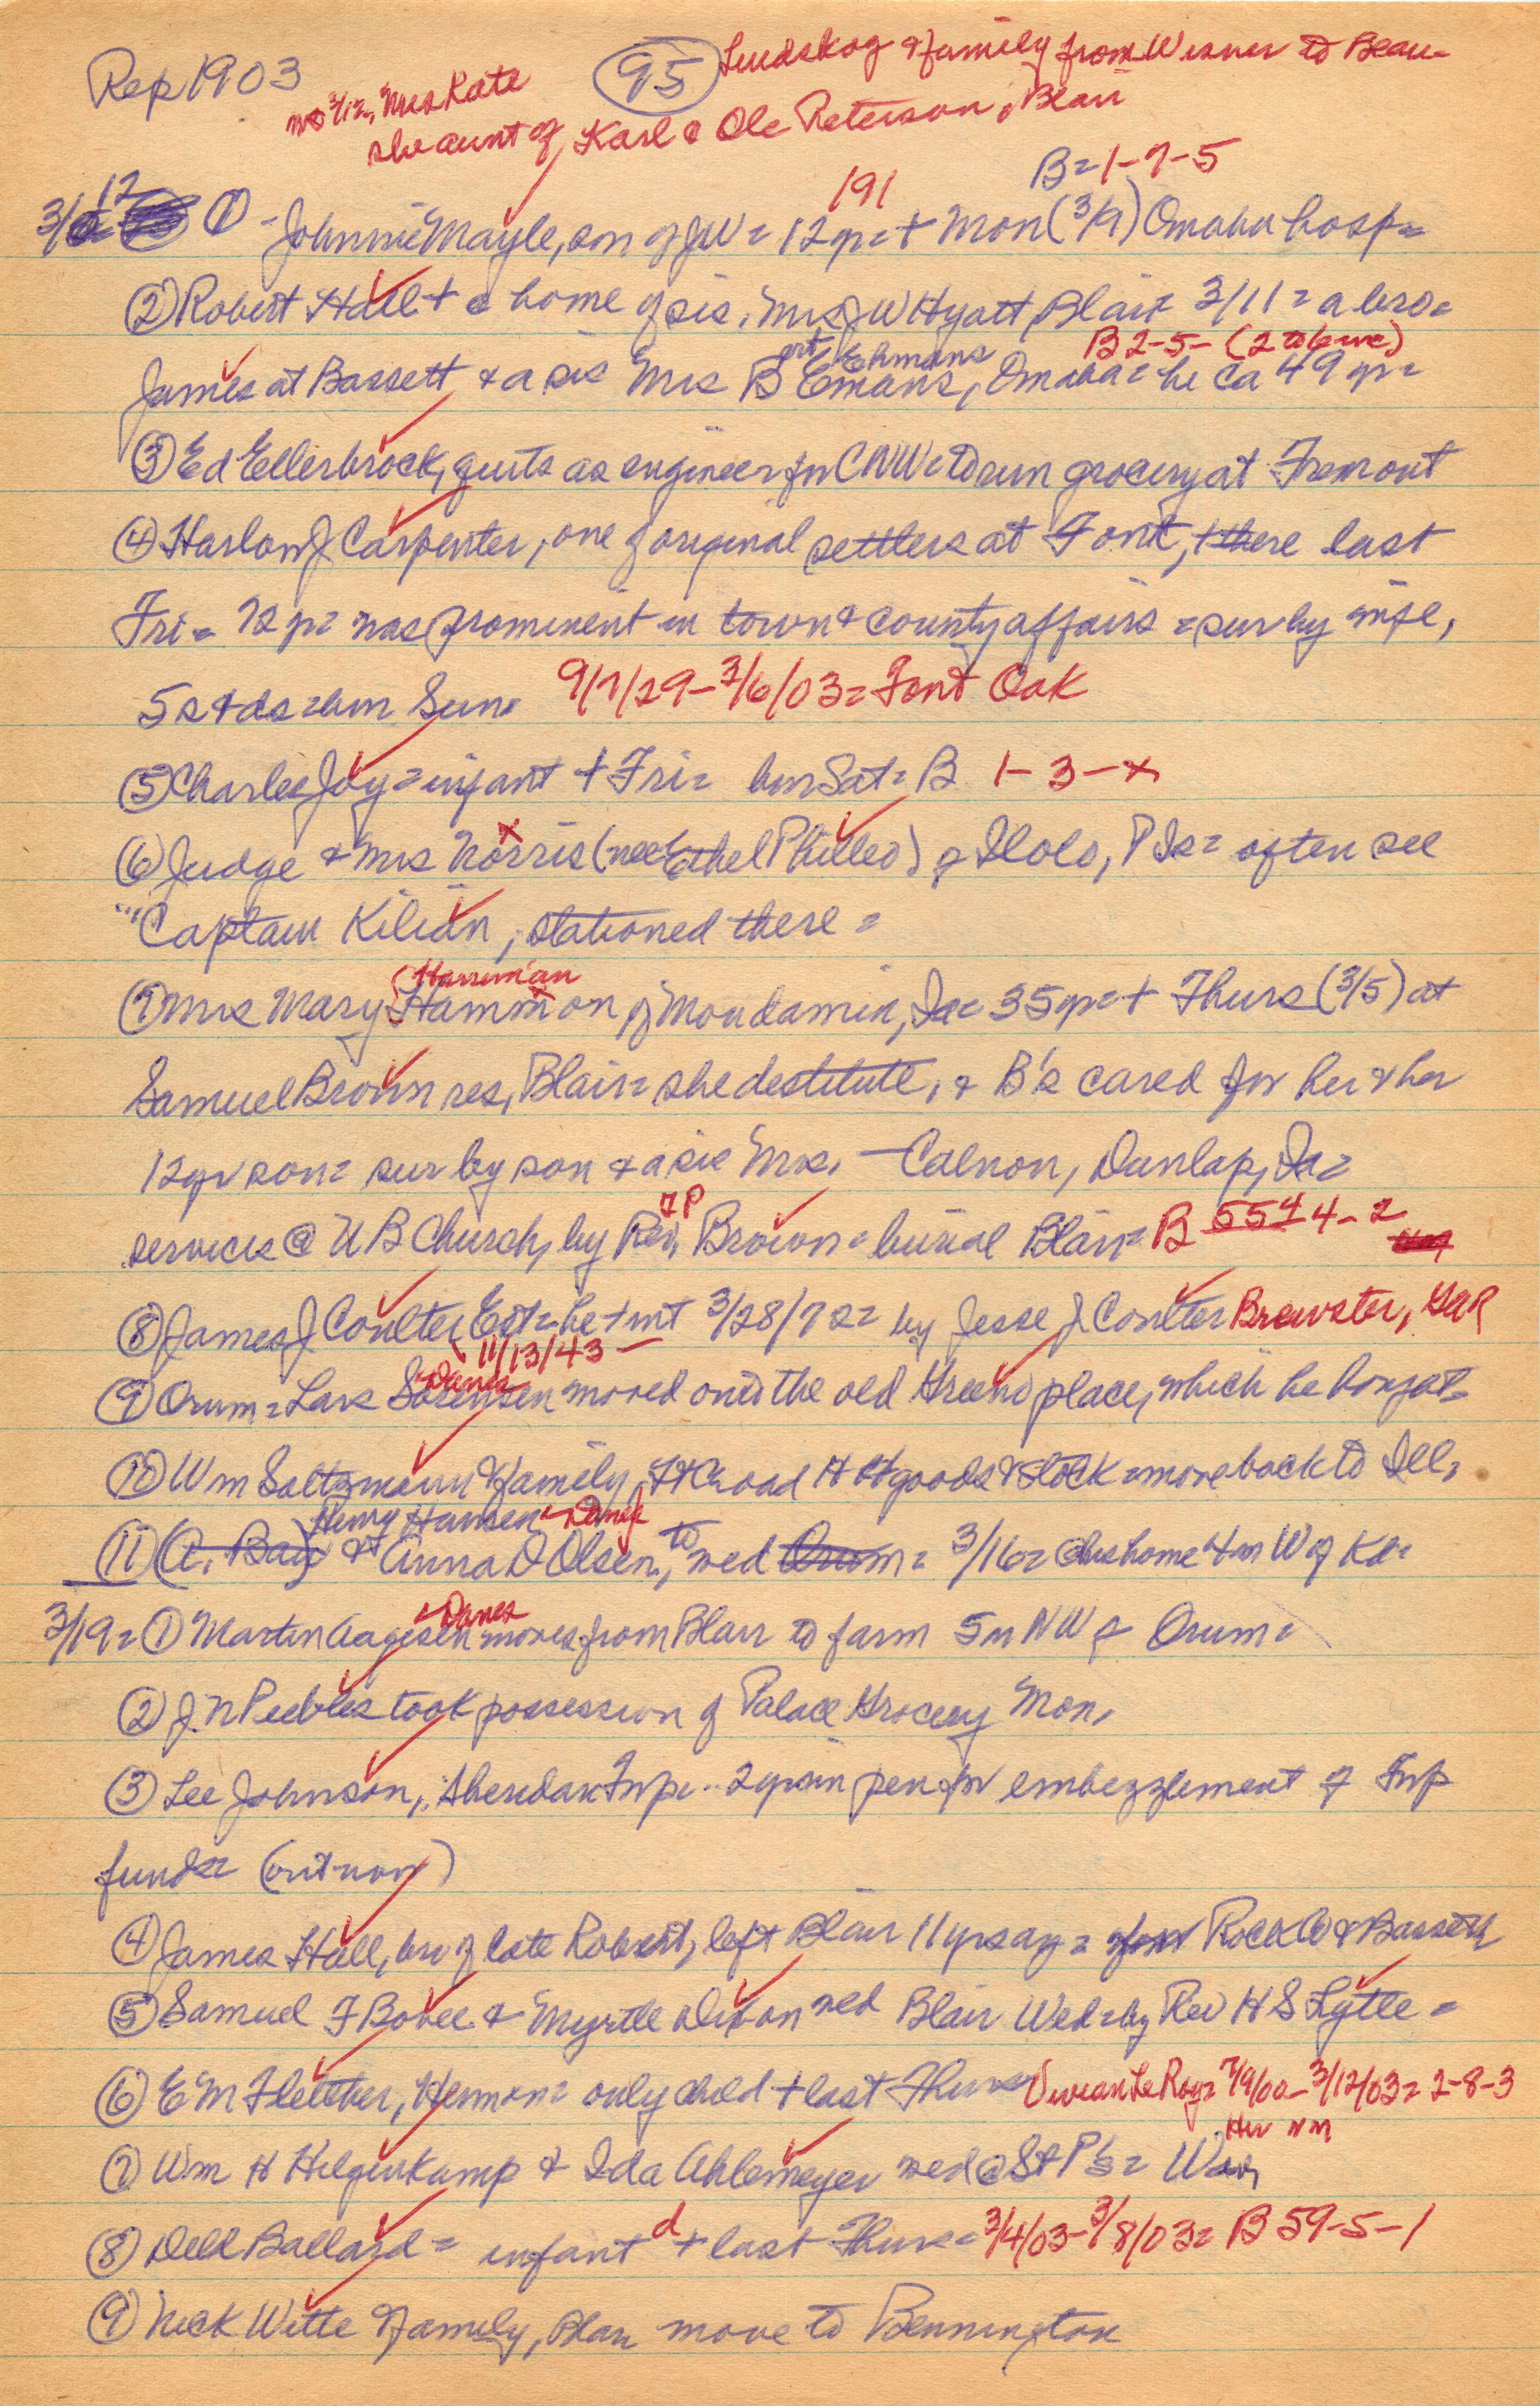 Rep 1903
95
Lindskog & family from Wisner to Blair
no 3/12, Mrs Kate
she aunt of Karl & Ole Peterson, Blair
B= 1-7-5
191
3/12 ① Johnnie Mayle, son of JW = 12 yr = + Mon (3/9) Omaha hosp=
② Robert Hall + @ home of sis, Mrs J W Hyatt, Blair 3/11 = a bro=
ert Ehmans B 2-5- (2 to)
James at Bassett & a sis Mrs B Emans, Omaha = he ca 49 yr=
③ Ed Ellerbrock, quits as engineer for CNW = to run grocery at Fremont
④ Harlow J Carpenter, one of original settlers at Font, + there last
Fri = 72 yr = was prominent in town & county affairs = sur by wife,
5 s & ds = bur Sun. 9/7/29-3/6/03= Font Oak
⑤ Charles Joy = infant + Fri = bur Sat = B 1-3-x
⑥ Judge & Mrs Norris (nee Ethel Philleo) of Iloilo, P Is = often see
Captain Kilian, stationed there =
(Harriman
⑦ Mrs Mary Hammon of Mondamin, Ia = 35 yr = + Thurs (3/5) at
Samuel Brown res, Blair = she destitute, & B's cared for her & her
12 yr son = sur by son & a sis Mrs. — Calnon, Dunlap, Ia =
J P
services @ U B Church, by Rev, Brown = burial Blair = B 5544-2
⑧ James J Coulter Est = he + int 3/28/72 = by Jesse J Coulter Brewster, GAR
11/13/43 -
Danes
⑨ Orum = Lars Sorensen moved onto the old Greeno place, which he bought=
⑩ Wm Saltzmann & family, & Cr oad H H goods & stock = move back to Ill,
Henry Hansen Danes
⑪ (A. Bay) & Anna D Olsen, to wed Orum = 3/16 = @ his home 4 m W of Kd=
Danes
3/19 = ① Martin Aagesen moves from Blair to farm 5 m NW of Orum =
② J. N Peebles took possession of Palace Grocery Mon,
③ Lee Johnson, Sheridan Twp .. 2 yrs in pen for embezzlement of Twp
funds = (out now)
④ James Hall, bro of late Robert, left Blair 11 yrs ago = Rock Co & Bassett
⑤ Samuel F Bovee & Myrtle Dixon wed Blair Wed = by Rev H S Lytle =
⑥ E M Fletcher, Herman = only child + last Thurs= Vivian Le Roy= 7/9/00-3/12/03= 2-8-3
Her NM
⑦ Wm H Hilgenkamp & Ida Ahlemeyer wed @ St P's =
⑧ Dell Ballard = infant d + last Thurs = 3/4/03-3/8/03= B 59-5-1
⑨ Nick Witte & family, Blair move to Bennington